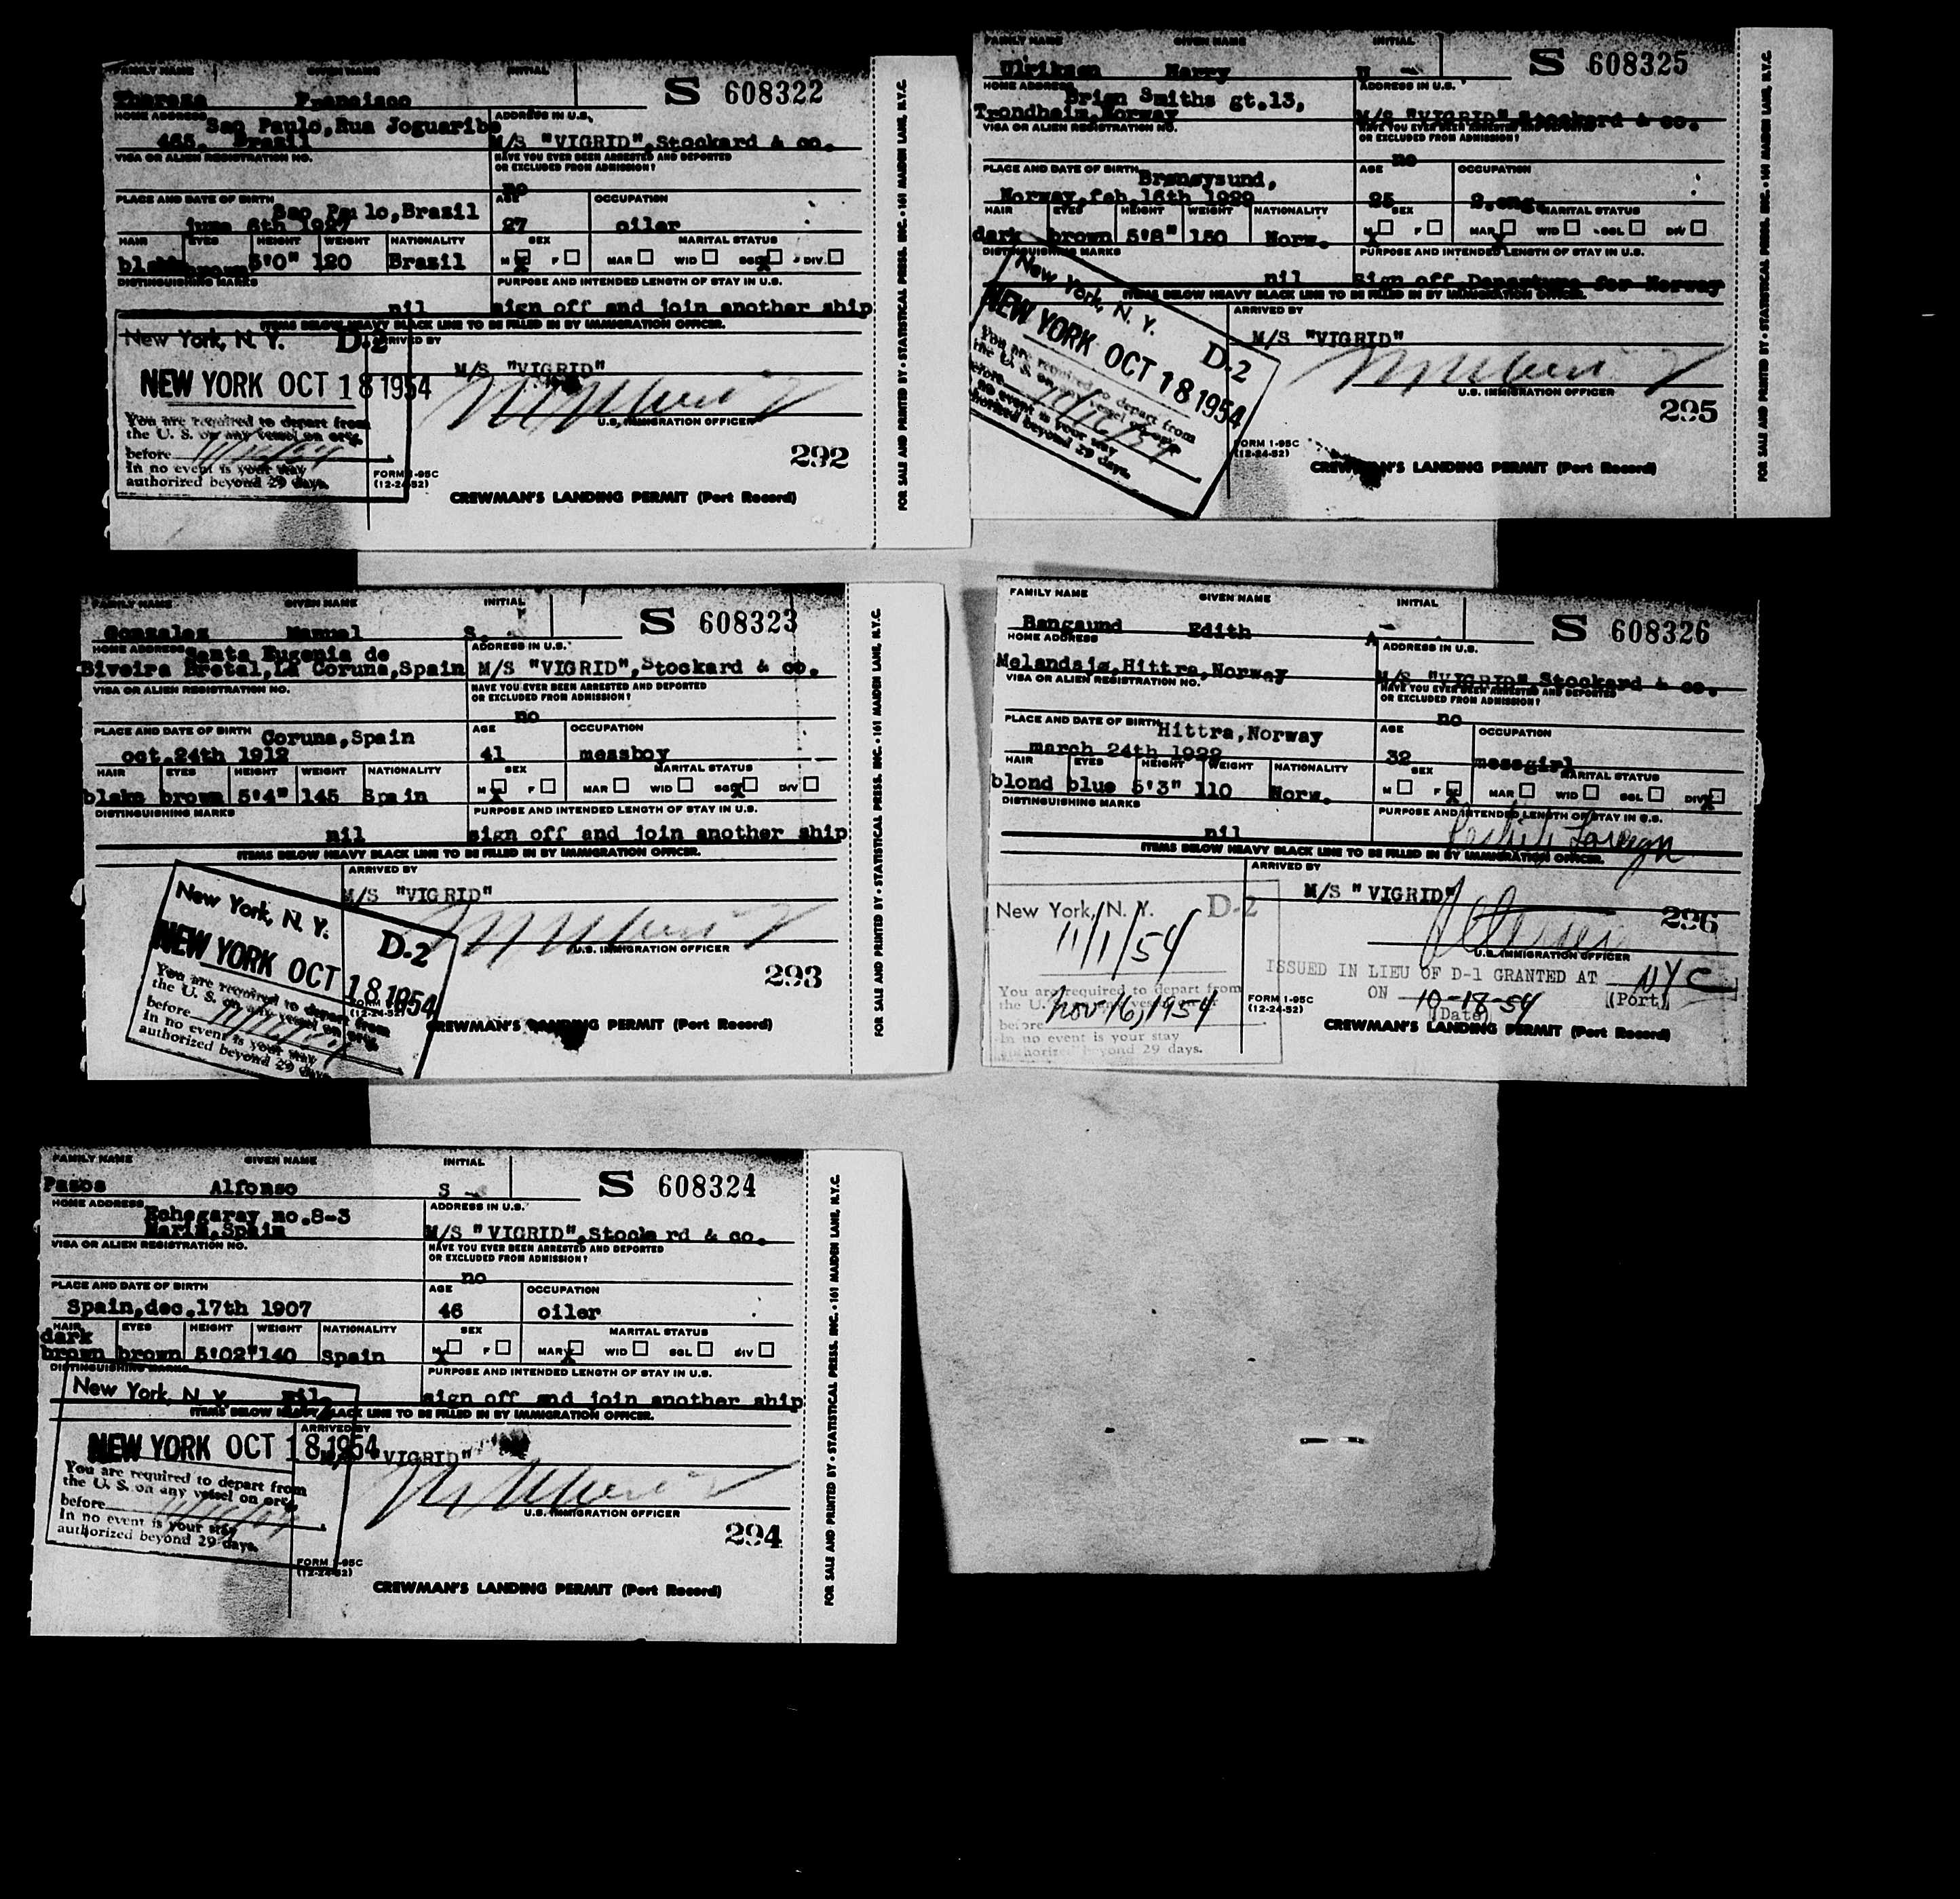 FAMILY NAME GIVEN NAME INITIAL
S 608322
Francisco
HOME ADDRESS Sao Paulo,Rua Joguaribe
465, Brazil
ADDRESS IN U.S.
M/S "VIGRID",Stockard & co.
VISA OR ALIEN REGISTRATION NO.
HAVE YOU EVER BEEN ARRESTED AND DEPORTED
OR EXCLUDED FROM ADMISSION?
no
PLACE AND DATE OF BIRTH Sao Pau lo,Brazil
june 6th 1927
AGE OCCUPATION
27 oiler
HAIR EYES HEIGHT WEIGHT NATIONALITY SEX MARITAL STATUS
blake brown 5'0" 120 Brazil M X F MAR WID SGL X DIV.
DISTINGUISHING MARKS PURPOSE AND INTENDED LENGTH OF STAY IN U.S.
nil sign off and join another ship
ITEMS BELOW HEAVY BLACK LINE TO BE FILLED IN BY IMMIGRATION OFFICER.
New York, N. Y. D-2
ARRIVED BY
M/S "VIGRID"
NEW YORK OCT 18 1954
You are required to depart from
the U. S. on any vessel on or
before
In no event is your stay
authorized beyond 29 days.
U.S. IMMIGRATION OFFICER
292
FORM I-95C
(12-24-52)
CREWMAN'S LANDING PERMIT (Port Record)
FOR SALE AND PRINTED BY • STATISTICAL PRESS. INC. • 161 MAIDEN LANE, N.Y.C.
FAMILY NAME GIVEN NAME INITIAL
S 608323
Gonzalez Manuel S.
HOME ADDRESS Santa Eugenia de
Riveira Bretal,La Coruna,Spain
ADDRESS IN U.S.
M/S "VIGRID",Stockard & co.
VISA OR ALIEN REGISTRATION NO.
HAVE YOU EVER BEEN ARRESTED AND DEPORTED
OR EXCLUDED FROM ADMISSION?
no
PLACE AND DATE OF BIRTH Coruna,Spain
oct.24th 1912
AGE OCCUPATION
41 messboy
HAIR EYES HEIGHT WEIGHT NATIONALITY SEX MARITAL STATUS
blake brown 5'4" 145 Spain M X F MAR WID SGL X DIV
DISTINGUISHING MARKS PURPOSE AND INTENDED LENGTH OF STAY IN U.S.
nil sign off and join another ship
ITEMS BELOW HEAVY BLACK LINE TO BE FILLED IN BY IMMIGRATION OFFICER.
ARRIVED BY
M/S "VIGRID"
New York, N. Y. D-2
NEW YORK OCT 18 1954
You are required to depart from
the U. S. on any vessel on or
before
In no event is your stay
authorized beyond 29 days
U.S. IMMIGRATION OFFICER
293
(12-24-52)
CREWMAN'S LANDING PERMIT (Port Record)
FOR SALE AND PRINTED BY • STATISTICAL PRESS. INC. • 161 MAIDEN LANE, N.Y.C.
FAMILY NAME GIVEN NAME INITIAL
S 608324
Pazos Alfonso S
HOME ADDRESS Echegaray no.8-3
Marin,Spain
ADDRESS IN U.S.
M/S "VIGRID",Stocka rd & co.
VISA OR ALIEN REGISTRATION NO.
HAVE YOU EVER BEEN ARRESTED AND DEPORTED
OR EXCLUDED FROM ADMISSION?
no
PLACE AND DATE OF BIRTH
Spain,dec.17th 1907
AGE OCCUPATION
46 oiler
HAIR EYES HEIGHT WEIGHT NATIONALITY SEX MARITAL STATUS
dark
brown brown 5'02" 140 Spain M X F MAR X WID SGL DIV
DISTINGUISHING MARKS PURPOSE AND INTENDED LENGTH OF STAY IN U.S.
nil sign off and join another ship
ITEMS BELOW HEAVY BLACK LINE TO BE FILLED IN BY IMMIGRATION OFFICER.
New York, N. Y.
ARRIVED BY
VIGRID"
NEW YORK OCT 18 1954
You are required to depart from
the U. S. on any vessel on or
before
In no event is your stay
authorized beyond 29 days.
U.S. IMMIGRATION OFFICER
294
FORM I-95C
(12-24-52)
CREWMAN'S LANDING PERMIT (Port Record)
FOR SALE AND PRINTED BY • STATISTICAL PRESS. INC. • 161 MAIDEN LANE, N.Y.C.
FAMILY NAME GIVEN NAME INITIAL
S 608325
Ulriksen Harry
HOME ADDRESS Brian Smiths gt.13,
Trondheim,Norway
ADDRESS IN U.S.
M/S "VIGRID" Stockard & co.
VISA OR ALIEN REGISTRATION NO.
HAVE YOU EVER BEEN ARRESTED AND DEPORTED
OR EXCLUDED FROM ADMISSION?
no
PLACE AND DATE OF BIRTH Brønøysund,
Norway,feb.16th 1929
AGE OCCUPATION
25 2.eng.
HAIR EYES HEIGHT WEIGHT NATIONALITY SEX MARITAL STATUS
dark brown 5'8" 150 Norw. M X F MAR X WID SGL DIV
DISTINGUISHING MARKS PURPOSE AND INTENDED LENGTH OF STAY IN U.S.
nil Sign off,Departure for Norway
ITEMS BELOW HEAVY BLACK LINE TO BE FILLED IN BY IMMIGRATION OFFICER.
ARRIVED BY
M/S "VIGRID"
New York, N. Y. D-2
NEW YORK OCT 18 1954
You are required to depart from
the U. S. on any vessel on or
before
no event is your stay
authorized beyond 29 days.
U.S. IMMIGRATION OFFICER
295
FORM I-95C
(12-24-52)
CREWMAN'S LANDING PERMIT (Port Record)
FOR SALE AND PRINTED BY • STATISTICAL PRESS. INC. • 161 MAIDEN LANE, N.Y.C.
FAMILY NAME GIVEN NAME INITIAL
S 608326
Bangsund Edith A
HOME ADDRESS
Melandsjø,Hittra,Norway
ADDRESS IN U.S.
M/S "VIGRID" Stockard & co.
VISA OR ALIEN REGISTRATION NO.
HAVE YOU EVER BEEN ARRESTED AND DEPORTED
OR EXCLUDED FROM ADMISSION?
no
PLACE AND DATE OF BIRTH Hittra,Norway
march 24th 1922
AGE OCCUPATION
32 messgirl
HAIR EYES HEIGHT WEIGHT NATIONALITY SEX MARITAL STATUS
blond blue 5'3" 110 Norw. M F X MAR WID SGL DIV X
DISTINGUISHING MARKS PURPOSE AND INTENDED LENGTH OF STAY IN U.S.
nil Reship Foreign
ITEMS BELOW HEAVY BLACK LINE TO BE FILLED IN BY IMMIGRATION OFFICER.
ARRIVED BY
M/S "VIGRID"
296
New York, N. Y. D-2
11/1/54
U.S. IMMIGRATION OFFICER
You are required to depart from
the U.
before Nov 16, 1954
In no event is your stay
authorized beyond 29 days.
ISSUED IN LIEU OF D-1 GRANTED AT NYC
ON 10-18-54 (Port)
(Date)
FORM I-95C
(12-24-52)
CREWMAN'S LANDING PERMIT (Port Record)